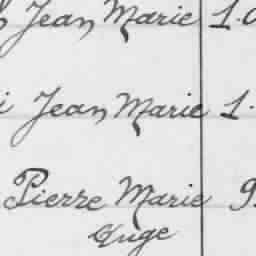 Jean Marie 1.
Jean Marie 1.
Pierre Marie 9
Ange